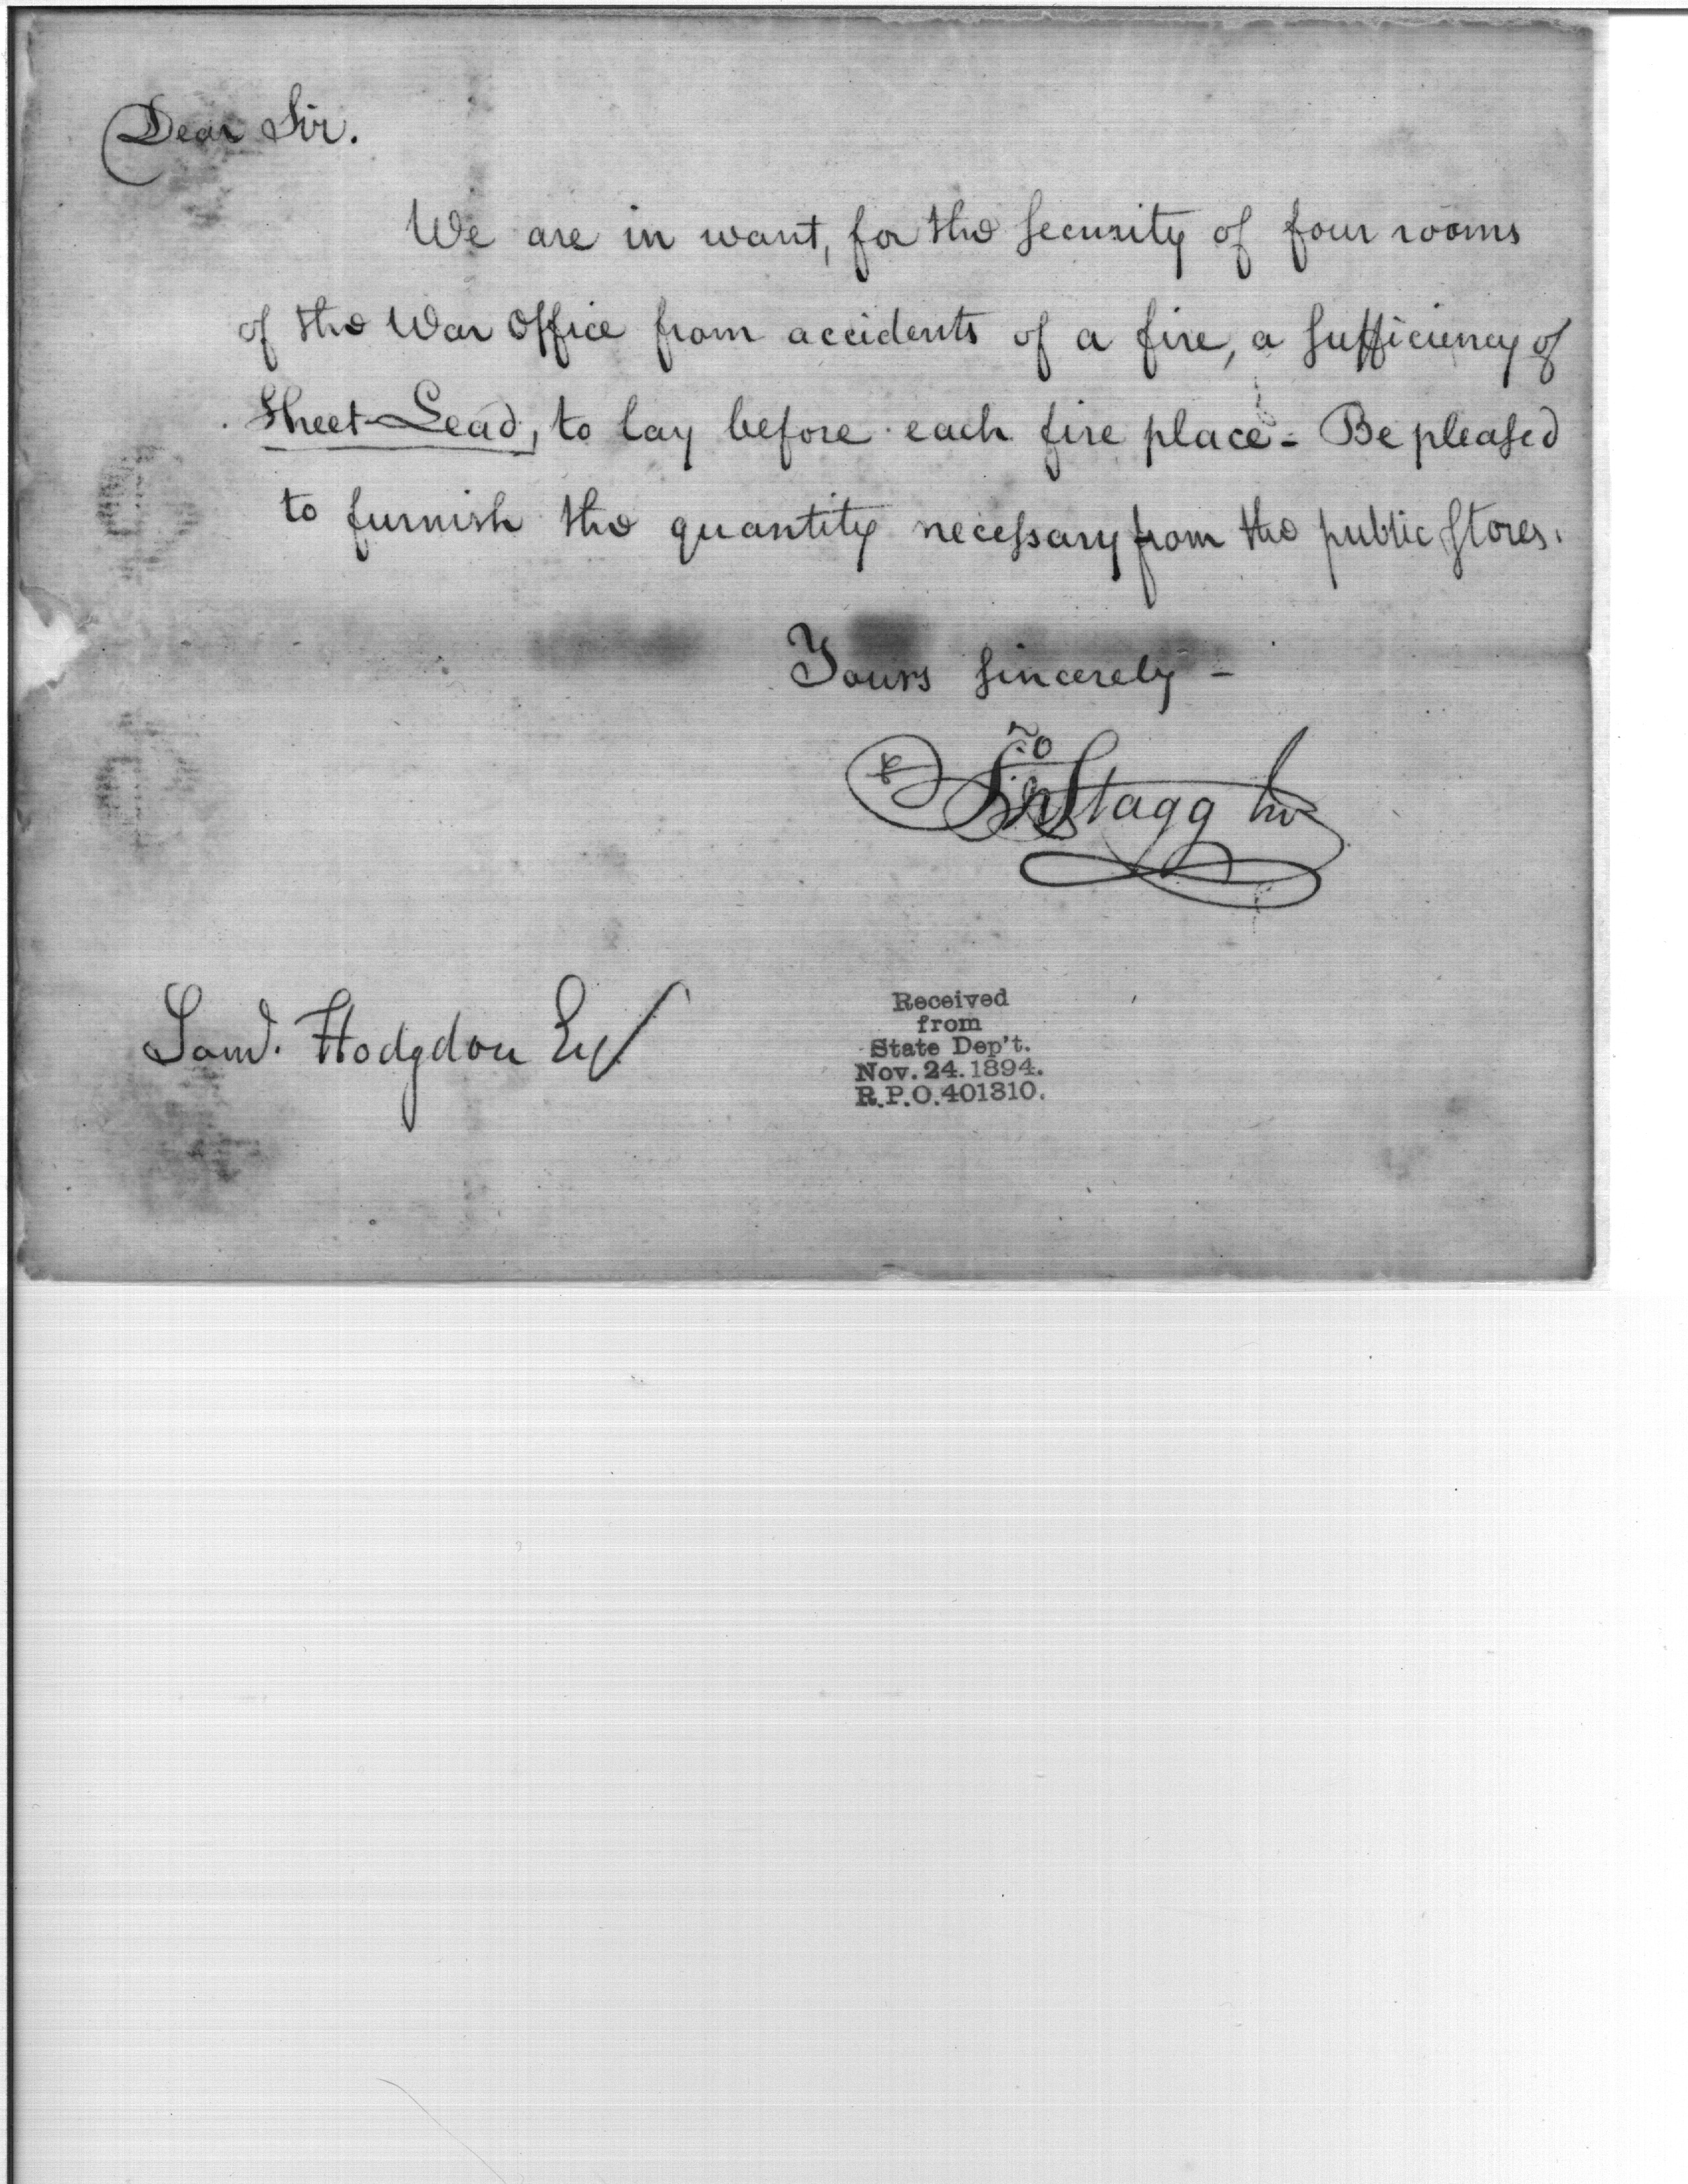 Dear Sir.
We are in want, for the security of four rooms
of the War Office from accidents of a fire, a sufficiency of
Sheet-Lead, to lay before each fire place - Be pleased
to furnish the quantity necessary from the public stores.
Yours sincerely -
Stagg
Saml. Hodgdon Esq
Received
from
State Dep't.
Nov. 24. 1894.
R.P.O. 401310.